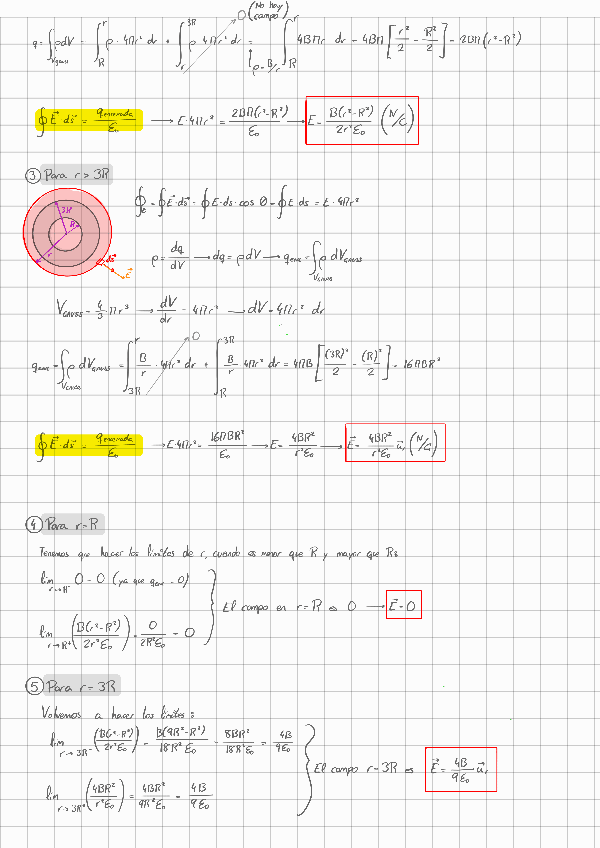 0 (No hay campo)
q = ∫_Vgauss ρdV = ∫_R^r ρ·4πr² dr + ∫_r^3R ρ 4πr² dr = ∫_R^r 4Bπr dr = 4Bπ [r²/2 - R²/2] = 2Bπ(r²-R²)
ρ=B/r
∮ E⃗ ds⃗ = q encerrada/ε₀ → E·4πr² = 2Bπ(r²-R²)/ε₀ → E = B(r²-R²)/2r²ε₀ (N/C)
③ Para r > 3R
∮_E = ∮E⃗·ds⃗ = ∮ E·ds·cos 0 = ∮ E ds = E·4πr²
3R
R
r
ds⃗
E⃗
ρ = dq/dV → dq = ρdV → q enc = ∫_Vgauss ρ dVgauss
V gauss = 4/3 πr³ → dV/dr = 4πr² → dV = 4πr² dr
0
q enc = ∫_Vgauss ρ dVgauss = ∫_3R^r B/r · 4πr² dr + ∫_R^3R B/r 4πr² dr = 4πB [(3R)²/2 - (R)²/2] = 16πBR²
∮ E⃗·ds⃗ = q encerrada/ε₀ → E·4πr² = 16πBR²/ε₀ → E = 4BR²/r²ε₀ → E⃗ = 4BR²/r²ε₀ u⃗r (N/C)
④ Para r=R
Tenemos que hacer los límites de r, cuando es menor que R y mayor que R:
lim r→R⁻ 0 = 0 (ya que q enc = 0)
El campo en r=R es 0 → E⃗=0
lim r→R⁺ (B(r²-R²)/2r²ε₀) = 0/2R²ε₀ = 0
⑤ Para r = 3R
Volvemos a hacer los límites:
lim r→3R⁻ (B(r²-R²)/2r²ε₀) = B(9R²-R²)/18R²ε₀ = 8BR²/18R²ε₀ = 4B/9ε₀
El campo r=3R es E⃗ = 4B/9ε₀ u⃗r
lim r→3R⁺ (4BR²/r²ε₀) = 4BR²/9R²ε₀ = 4B/9ε₀